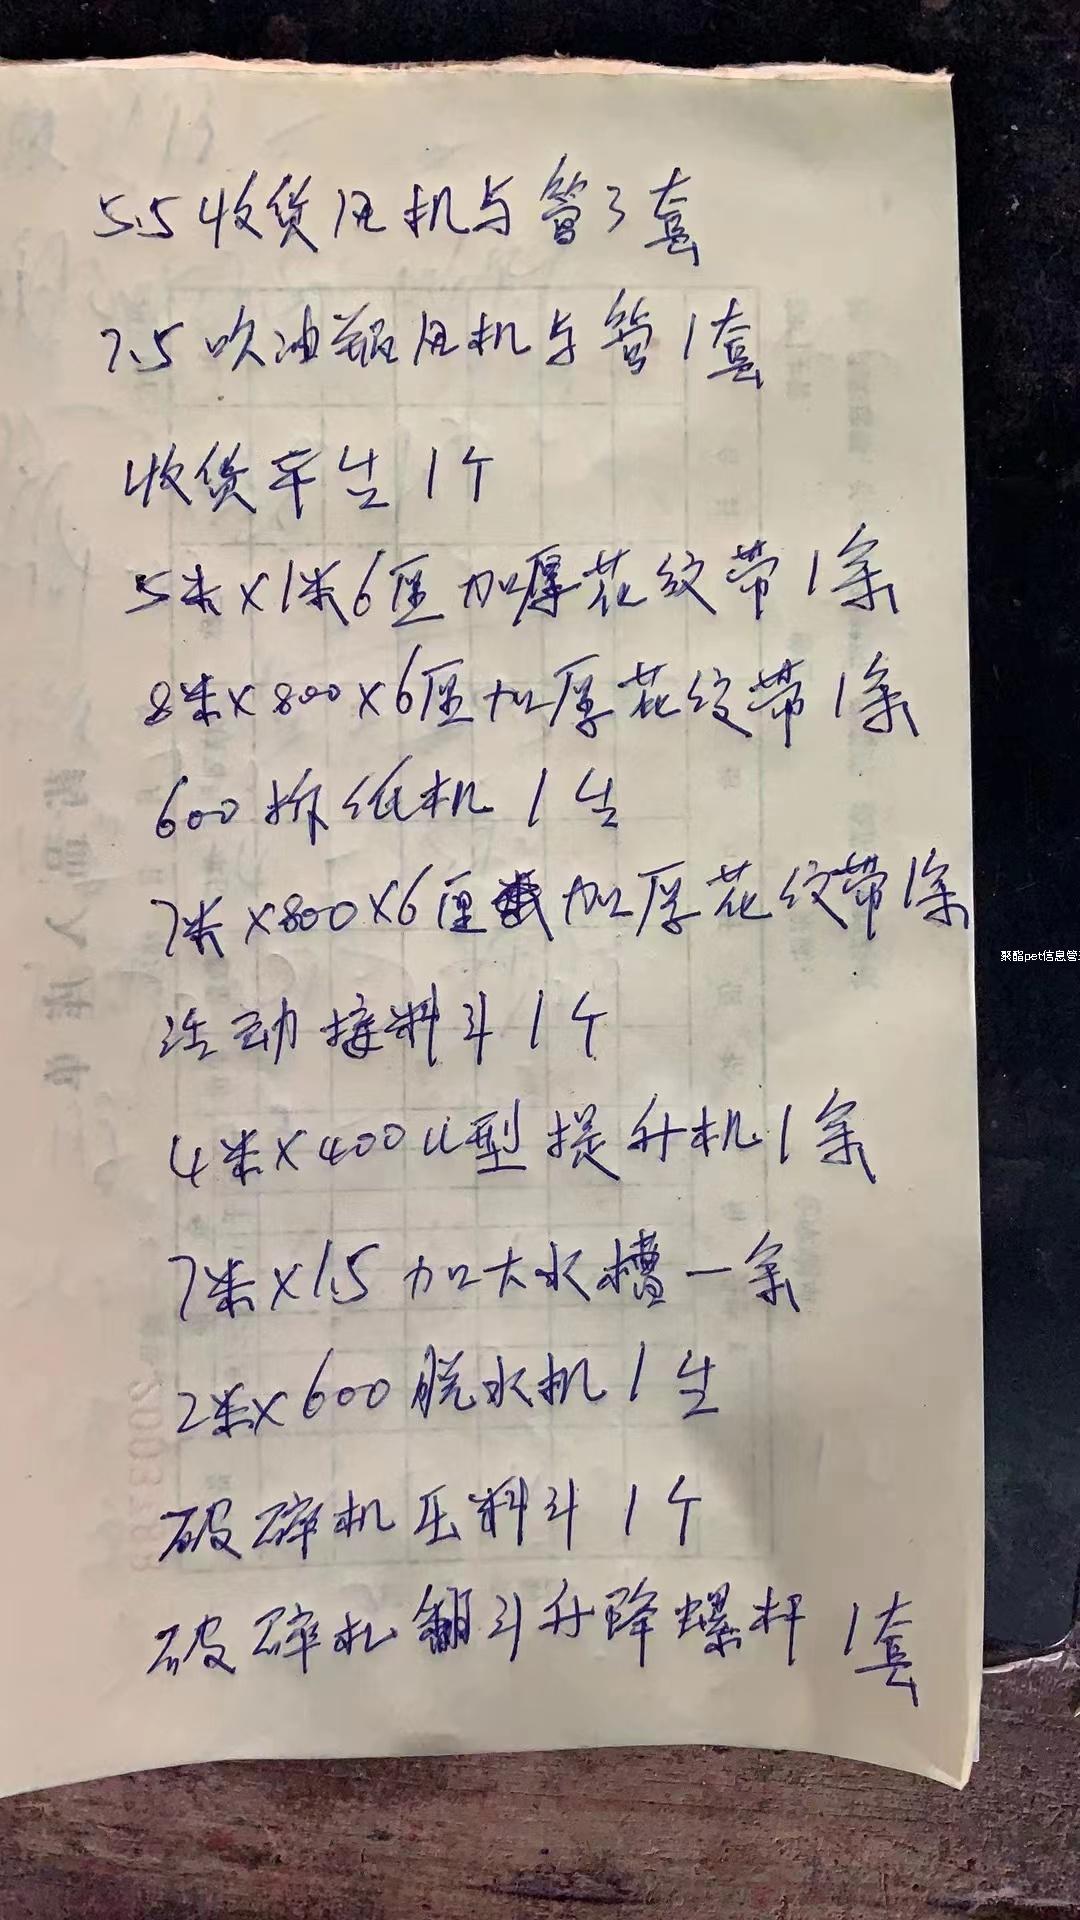 5.5收货风机与管3套
7.5吹油瓶风机与管1套
收货平台1个
5米×1米6厘加厚花纹带1条
8米×800×6厘加厚花纹带1条
600拆纸机1台
7米×800×6厘加厚花纹带1条
活动接料斗1个
4米×400U型提升机1条
7米×1.5加大水槽一条
2米×600脱水机1台
破碎机压料斗1个
破碎机翻斗升降螺杆1套
聚酯pet信息管